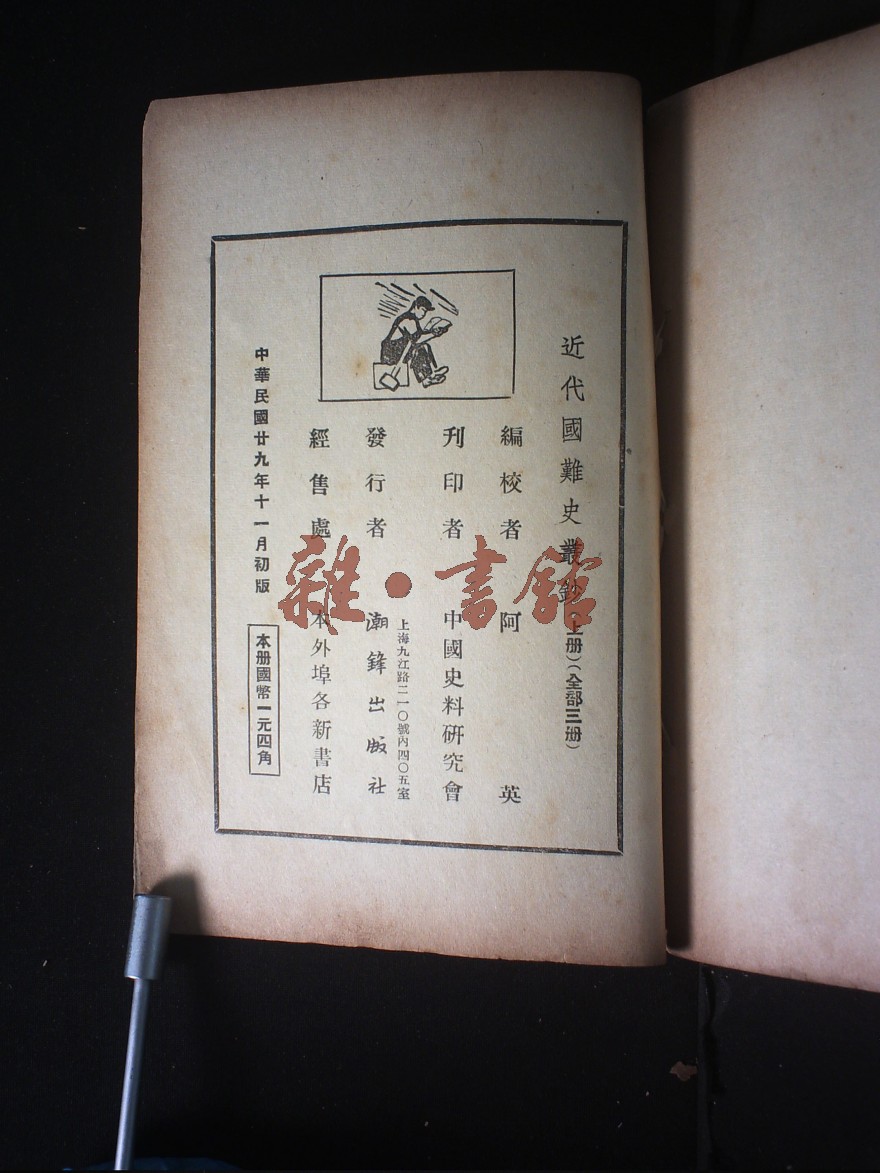 近代國難史叢鈔（上册）（全部三册）
編校者 阿英
刊印者 中國史料研究會
上海九江路二一〇號內四〇五室
發行者 潮鋒出版社
經售處 本外埠各新書店
中華民國廿九年十一月初版
本册國幣一元四角
雜·書館